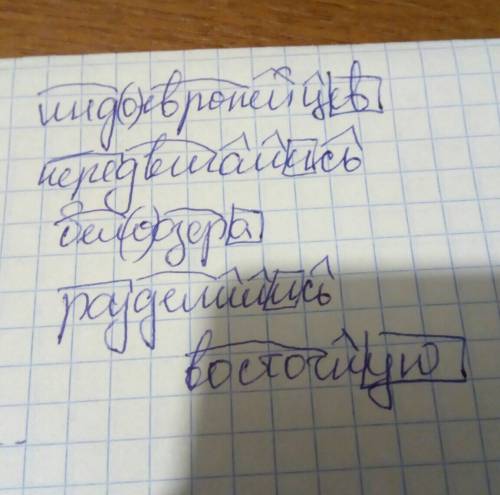 индоевропейцев
передвигались
белоозера
разделились
восточную